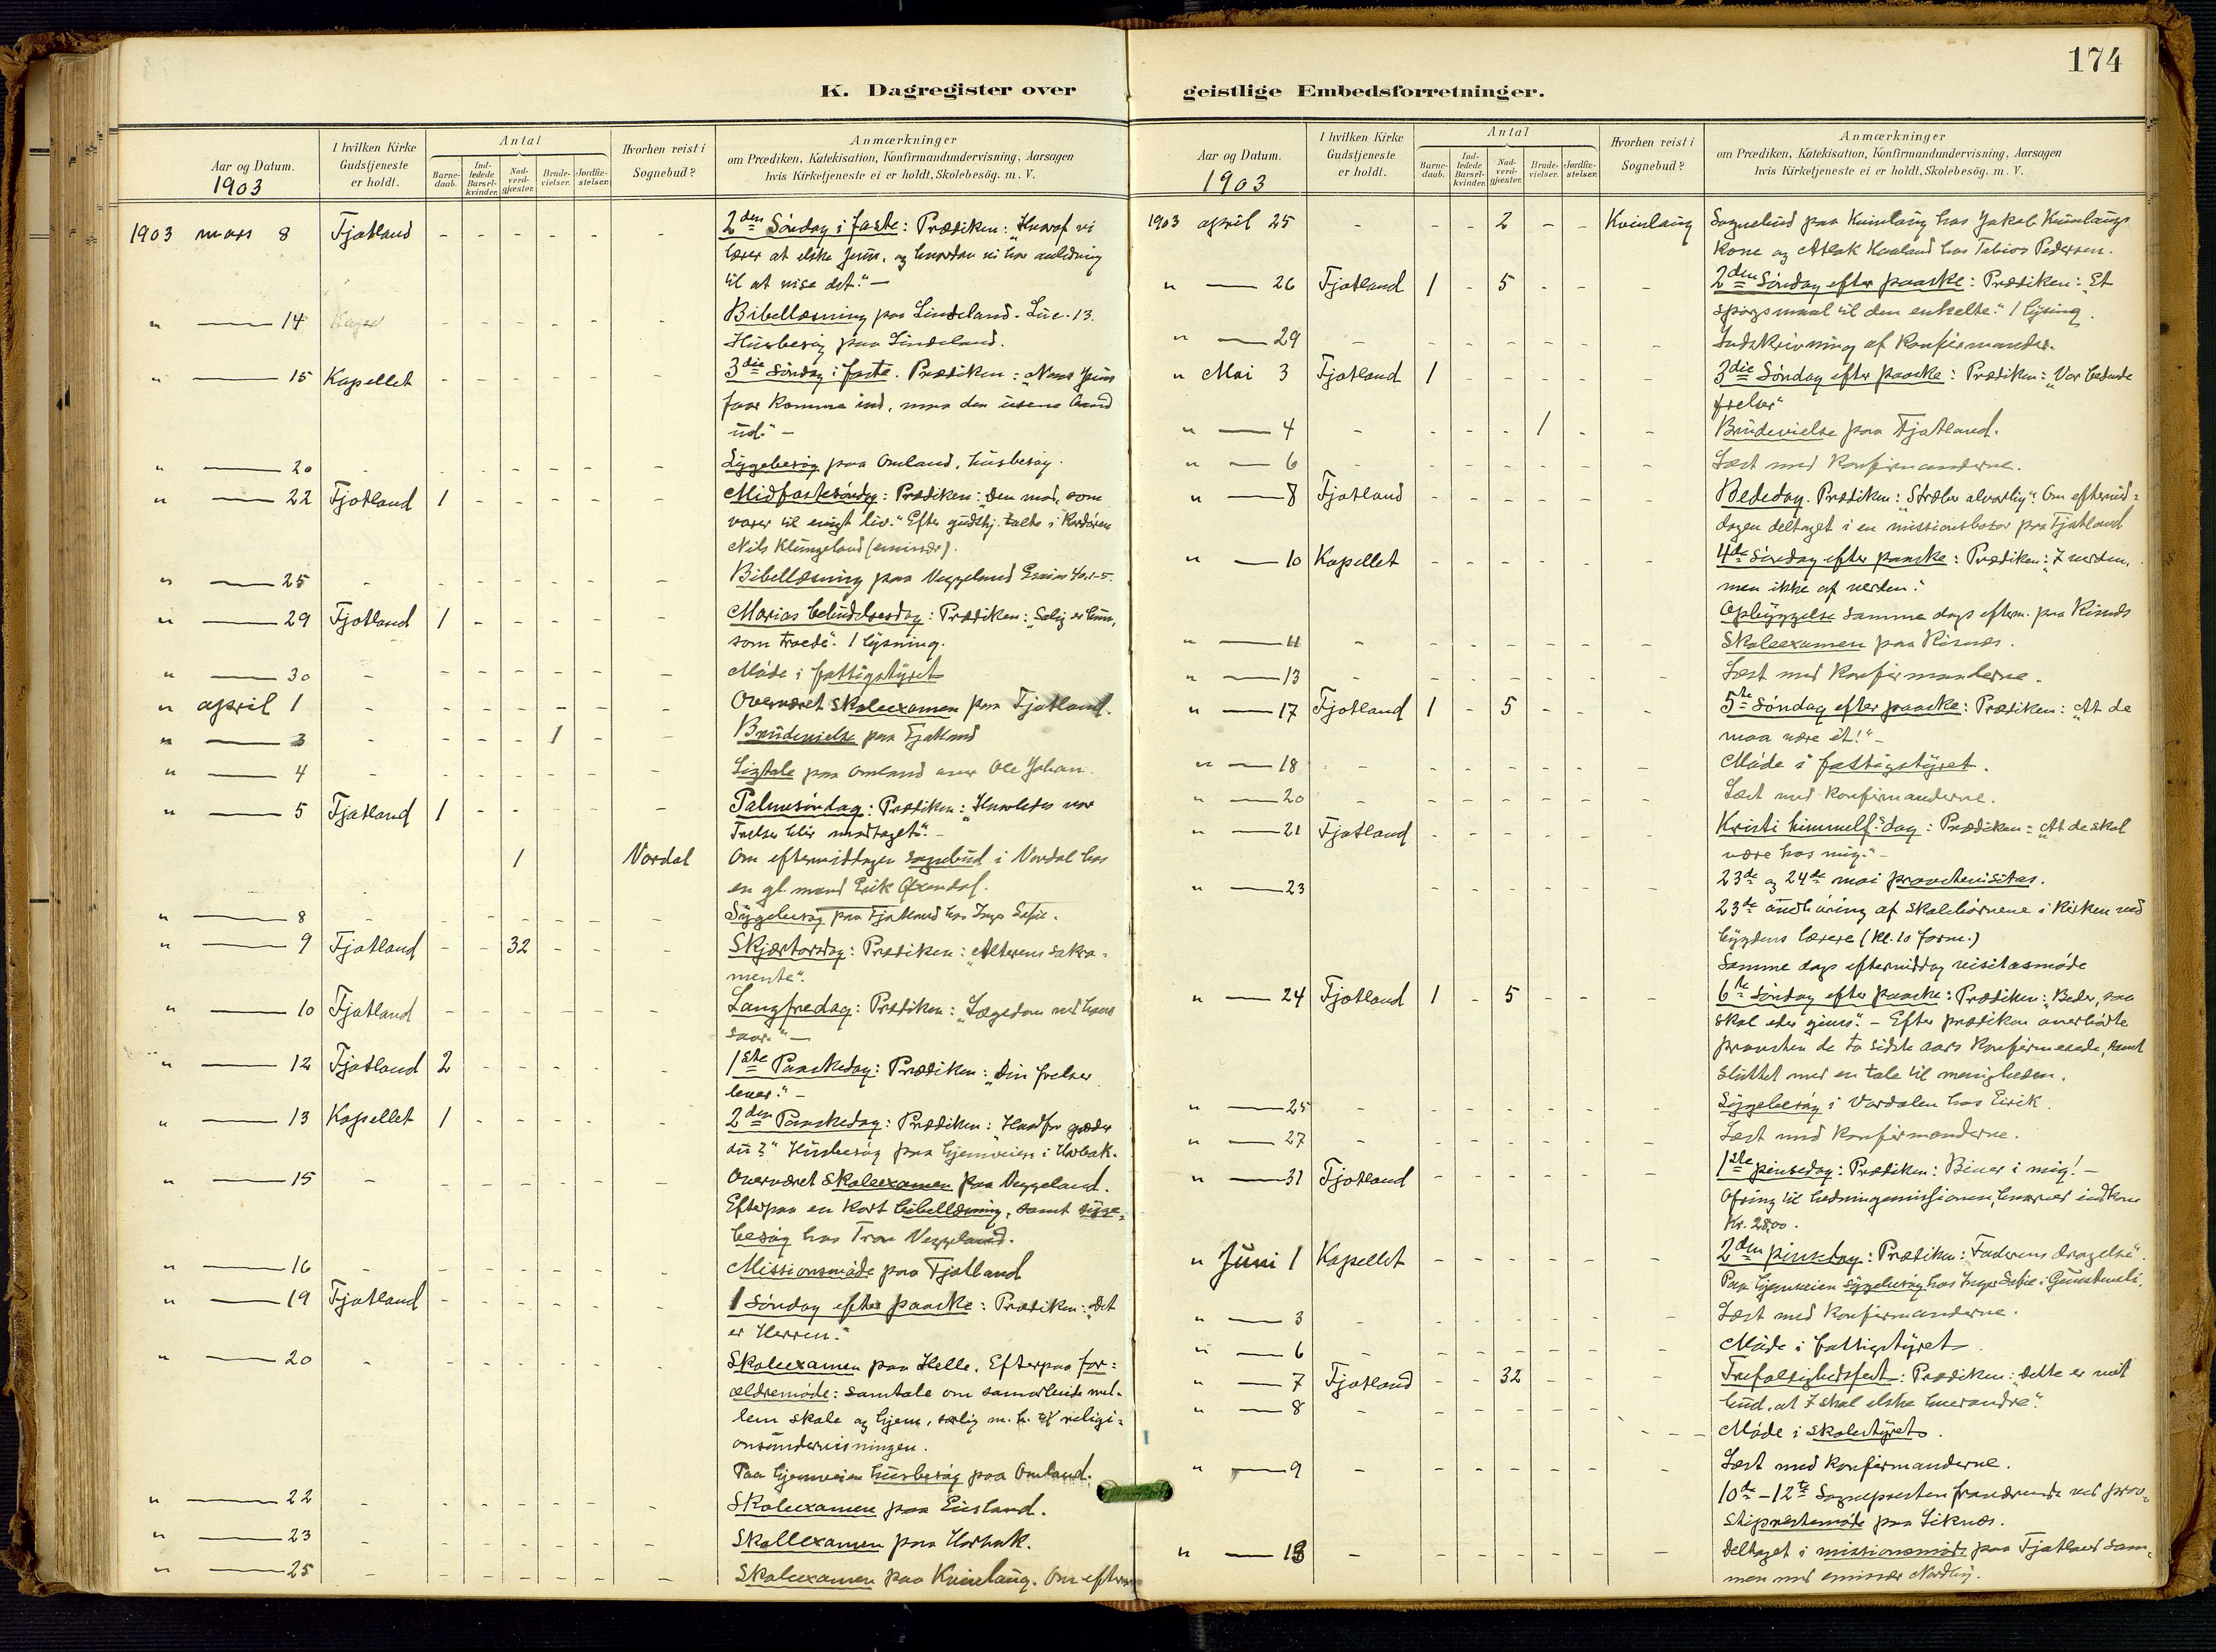 174
K. Dagregister over geistlige Embedsforretninger.
Aar og Datum.
1903
I hvilken Kirke Gudstjeneste er holdt.
Antal
Barne-daab.
Ind-ledede Barsel-kvinder.
Nad-verd-gjæster.
Brude-vielser.
Jordfæ-stelser.
Hvorhen reist i Sognebud?
Anmærkninger
om Prædiken, Katekisation, Konfirmandundervisning, Aarsagen
hvis Kirketjeneste ei er holdt, Skolebesög. m. V.
1903 mars 8 Fjotland - - - - - - 2den Søndag i faste: Prædiken: "Hvoraf vi
lærer at elske Jesus, og hvordan vi har anledning
til at vise det." —
" — 14 - - - - - - Bibellæsning paa Lindeland. Luc. 13.
Husbesøg paa Lindeland.
" — 15 Kapellet - - - - - - 3die Søndag i faste. Prædiken: "Naar Jesus
faar komme ind, maa den urene aand
ud." —
" — 20 - - - - - - - Sygebesøg paa Omland, husbesøg.
" — 22 Fjotland 1 - - - - - Midfastesøndag: Prædiken: "Den mad, som
varer til evigt liv." Efter gudstj. talte i Kordøren
Nils Klungeland (emissær).
" — 25 - - - - - - - Bibellæsning paa Veggeland Esaias 40,1-5.
" — 29 Fjotland 1 - - - - - Marias bebudelsesdag: Prædiken: "Salig er hun,
som troede". 1 lysning.
" — 30 - - - - - - - Møde i fattigstyret
" april 1 - - - - - - - Overværet skoleexamen paa Fjotland.
" — 3 - - - - 1 - - Brudevielse paa Fjotland
" — 4 - - - - - - - Ligtale paa Omland over Ole Johan.
" — 5 Fjotland 1 - - - - - Palmesøndag: Prædiken: "Hvorledes vor
frelser blir modtaget". —
1 Vordal Om eftermiddagen sognebud i Vordal hos
en gl. mand Eirik
" — 8 - - - - - - - Sygebesøg paa Fjotland hos Inger Sofie.
" — 9 Fjotland - - 32 - - - Skjærtorsdag: Prædiken: "Alterens sakra-
mente".
" — 10 Fjotland - - - - - - Langfredag: Prædiken: "Lægedom ved hans
saar." —
" — 12 Fjotland 2 - - - - - 1ste Paaskedag: Prædiken: "Din frelser
lever." —
" — 13 Kapellet 1 - - - - - 2den Paaskedag: Prædiken: "Hvorfor græder
du?" Husbesøg paa hjemveien i Horbak.
" — 15 - - - - - - Overværet Skoleexamen paa Veggeland.
Efterpaa en kort bibellæsning, samt syge-
besøg hos Tron Veggeland.
" — 16 - - - - - - - Missionsmøde paa Fjotland
" — 19 Fjotland - - - - - - 1 Søndag efter paaske: Prædiken: "Det
er Herren."
" — 20 - - - - - - - Skoleexamen paa Helle. Efterpaa for-
ældremøde: samtale om samarbeide mel-
lem skole og hjem, særlig m. h. til religi-
onsundervisningen.
Paa hjemveien husbesøg paa Omland.
" — 22 - - - - - - - Skoleexamen paa Eiesland.
" — 23 - - - - - - - Skoleexamen paa Horbak.
" — 25 - - - - - - - Skoleexamen paa Kvinlaug. Om efterm
Aar og Datum.
1903
I hvilken Kirke Gudstjeneste er holdt.
Antal
Barne-daab.
Ind-ledede Barsel-kvinder.
Nad-verd-gjæster.
Brude-vielser.
Jordfæ-stelser.
Hvorhen reist i Sognebud?
Anmærkninger
om Prædiken, Katekisation, Konfirmandundervisning, Aarsagen
hvis Kirketjeneste ei er holdt, Skolebesög. m. V.
1903 april 25 - - - 2 - - Kvinlaug Sognebud paa Kvinlaug hos Jakob Kvinlaugs
kone og Aslak Haaland hos Tobias Pedersen.
" — 26 Fjotland 1 - 5 - - - 2den Søndag efter paaske: Prædiken: "Et
spørgsmaal til den enkelte." 1 lysning.
" — 29 - - - - - - - Indskrivning af konfirmander.
" Mai 3 Fjotland 1 - - - - - 3die Søndag efter paaske: Prædiken: "Vor bedende
frelser"
" — 4 - - - - 1 - - Brudevielse paa Fjotland.
" — 6 - - - - - - - Læst med konfirmanderne.
" — 8 Fjotland - - - - - - Bededag. Prædiken: "Stræber alvorlig". Om eftermid-
dagen deltaget i en missionsbasar paa Fjotland
" — 10 Kapellet - - - - - - 4de Søndag efter paaske: Prædiken: "I verden,
men ikke af verden."
Opbyggelse samme dags efterm. paa Risnes
" — 11 - - - - - - - Skoleexamen paa Risnes.
" — 13 - - - - - - - Læst med konfirmanderne.
" — 17 Fjotland 1 - 5 - - - 5te Søndag efter paaske: Prædiken: "At de
maa være ét!" —
" — 18 - - - - - - - Møde i fattigstyret.
" — 20 - - - - - - - Læst med konfirmanderne.
" — 21 Fjotland - - - - - - Kristi himmelf. dag: Prædiken: "At de skal
være hos mig." —
" — 23 - - - - - - 23de og 24de mai provstevisitas.
23de andhøring af skolebørnene i kirken ved
bygdens lærere (kl. 10 form.)
Samme dags eftermiddag visitasmøde
" — 24 Fjotland 1 - 5 - - - 6te Søndag efter paaske: Prædiken: "Beder, saa
skal eder gives". — Efter prædiken overhørte
provsten de to sidste aars konfirmerede, samt
sluttet med en tale til menigheden.
" — 25 - - - - - - - Sygebesøg i Vordalen hos Eirik.
" — 27 - - - - - - - Læst med konfirmanderne.
" — 31 Fjotland - - - - - - 1ste pinsedag: Prædiken: Bliver i mig! —
Ofring til hedningemissionen, hvorved indkom
Kr. 28,00.
" Juni 1 Kapellet - - - - - - 2den pinsedag: Prædiken: "Faderens dragelse".
Paa hjemveien sygebesøg hos Inger Sofie i
" — 3 - - - - - - - Læst med konfirmanderne.
" — 6 - - - - - - - Møde i fattigstyret.
" — 7 Fjotland - - 32 - - - Trefoldighedsfest: Prædiken: "Dette er mit
bud, at I skal elske hverandre".
" — 8 - - - - - - - Møde i skolestyret.
" — 9 - - - - - - - Læst med konfirmanderne.
10de-12te Sognepresten fraværende ved prov-
stiprestemøde paa Liknes.
" — 13 - - - - - - - Deltaget i missionsmøde paa Fjotland sam-
men med emissær